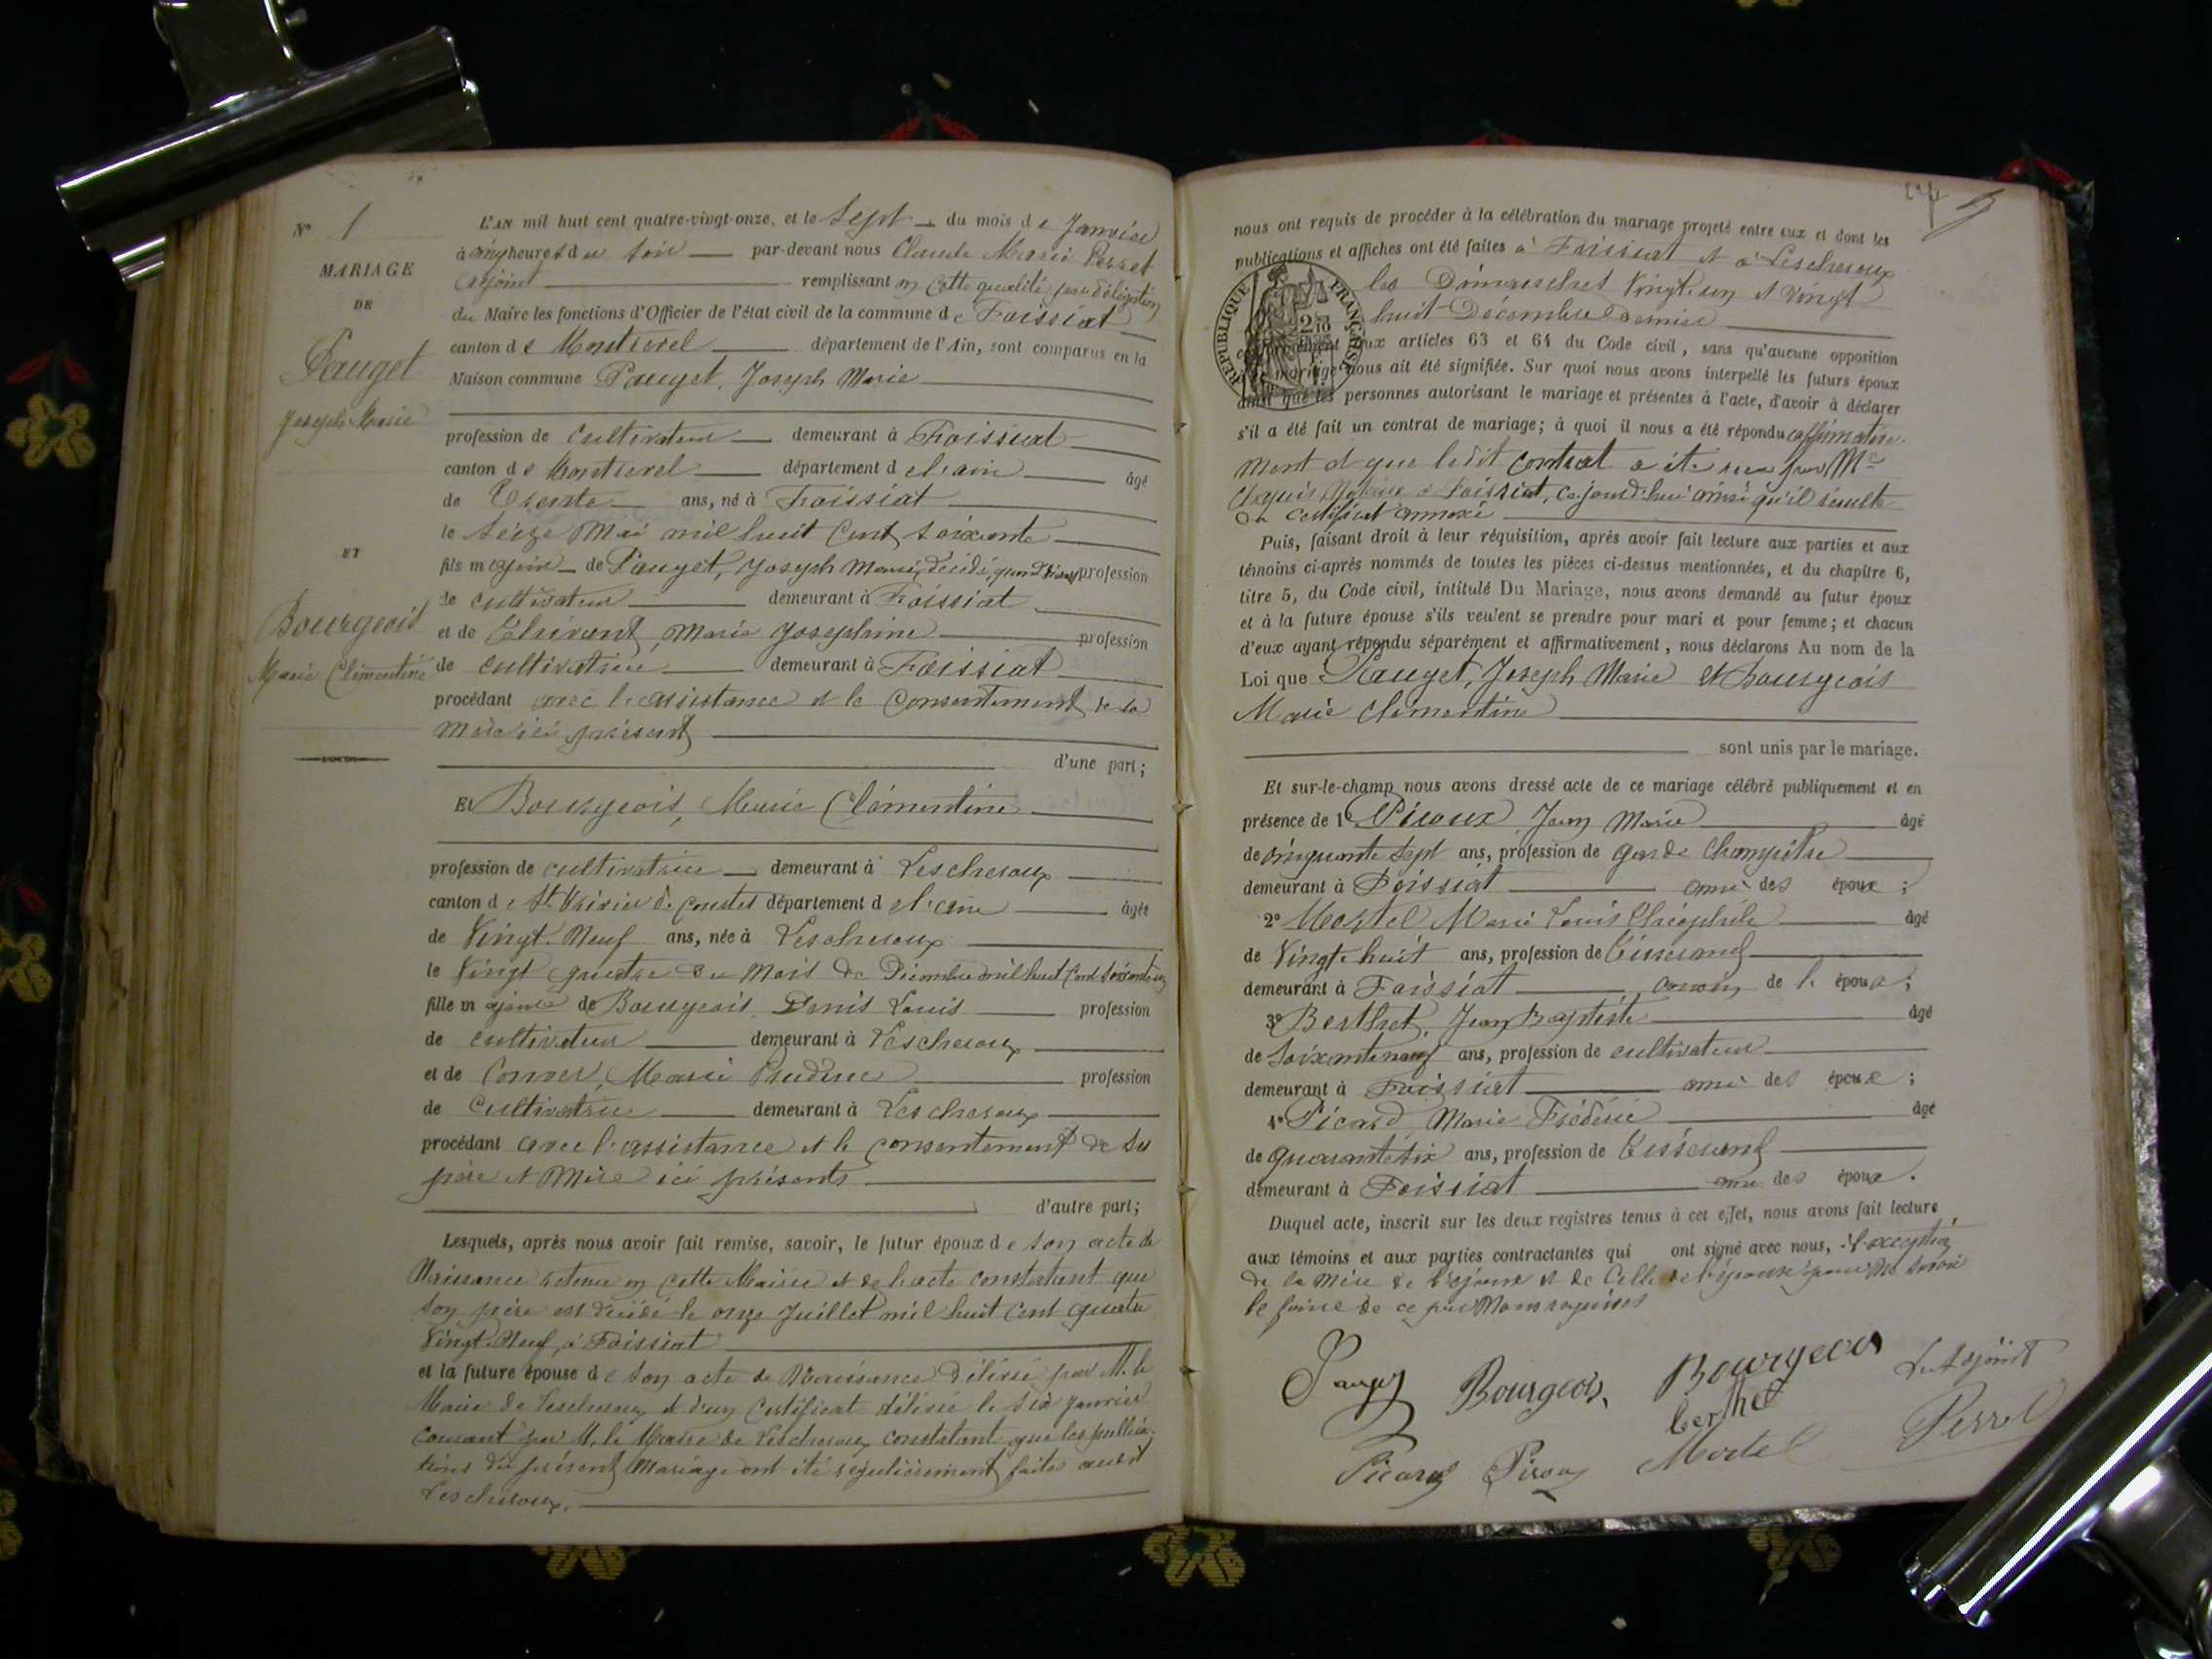 N° 1
MARIAGE
DE
Pauget
Joseph Marie
ET
Bourgeois
Marie Clémentine
L'AN mil huit cent quatre-vingt-onze, et le Sept du mois de Janvier
à cinq heures du soir par-devant nous Claude Marie Perret
adjoint remplissant en cette qualité par délégation
du Maire les fonctions d'Officier de l'état civil de la commune de Foissiat
canton de Montrevel département de l'Ain, sont comparus en la
Maison commune Pauget, Joseph Marie
profession de cultivateur demeurant à Foissiat
canton de Montrevel département de l'ain âgé
de Trente ans, né à Foissiat
le seize Mai mil huit Cent soixante
fils majeur de Pauget, Joseph Marie, décédé, quand vivait profession
de cultivateur demeurant à Foissiat
et de Marie Josephine profession
de cultivatrice demeurant à Foissiat
procédant avec l'assistance et le Consentement de sa
mère ici présent
d'une part;
Et Bourgeois, Marie Clémentine
profession de cultivatrice demeurant à Lescheroux
canton de St Trivier de Courtes département de l'ain âgée
de Vingt-Neuf ans, née à Lescheroux
le Vingt quatre du Mois de Décembre mil huit Cent soixante un
fille majeure de Bourgeois Denis Louis profession
de cultivateur demeurant à Lescheroux
et de Marie Prudence profession
de cultivatrice demeurant à Lescheroux
procédant avec l'assistance et le consentement de ses
père et Mère ici présents
d'autre part;
Lesquels, après nous avoir fait remise, savoir, le futur époux de son acte de
Naissance retenu en cette Mairie et de l'acte constatant que
son père est décédé le onze Juillet mil huit Cent quatre
Vingt-Neuf, à Foissiat
et la future épouse de son acte de Naissance délivré par M. le
Maire de Lescheroux et d'un Certificat délivré le six janvier
courant par M. le Maire de Lescheroux constatant que les publica-
tions du présent Mariage ont été régulièrement faites audit
Lescheroux.
nous ont requis de procéder à la célébration du mariage projeté entre eux et dont les
publications et affiches ont été faites à Foissiat et à Lescheroux
les Dimanches Vingt-un et Vingt
huit Décembre dernier
RÉPUBLIQUE FRANÇAISE
conformément aux articles 63 et 64 du Code civil, sans qu'aucune opposition
audit mariage nous ait été signifiée. Sur quoi nous avons interpellé les futurs époux
ainsi que les personnes autorisant le mariage et présentes à l'acte, d'avoir à déclarer
s'il a été fait un contrat de mariage; à quoi il nous a été répondu affirmative-
ment et que ledit contrat a été reçu par Me
Notaire à Foissiat, cejourd'hui ainsi qu'il résulte
du certificat annexé
Puis, faisant droit à leur réquisition, après avoir fait lecture aux parties et aux
témoins ci-après nommés de toutes les pièces ci-dessus mentionnées, et du chapitre 6,
titre 5, du Code civil, intitulé Du Mariage, nous avons demandé au futur époux
et à la future épouse s'ils veulent se prendre pour mari et pour femme; et chacun
d'eux ayant répondu séparément et affirmativement, nous déclarons Au nom de la
Loi que Pauget, Joseph Marie et Bourgeois
Marie Clémentine
sont unis par le mariage.
Et sur-le-champ nous avons dressé acte de ce mariage célébré publiquement et en
présence de 1° Piroux Jean Marie âgé
de cinquante sept ans, profession de garde Champêtre
demeurant à Foissiat ami des époux;
2° Mortel Marie Louis Théophile âgé
de Vingt-huit ans, profession de Tisserand
demeurant à Foissiat cousin de l'époux;
3° Berthet, Jean Baptiste âgé
de soixante neuf ans, profession de cultivateur
demeurant à Foissiat ami des époux;
4° Picard Marie Frédéric âgé
de quarante six ans, profession de Tisserand
demeurant à Foissiat ami des époux.
Duquel acte, inscrit sur les deux registres tenus à cet effet, nous avons fait lecture
aux témoins et aux parties contractantes qui ont signé avec nous, à l'exception
de la Mère de l'époux et de Celle de l'épouse pour ne savoir
le faire de ce par Nous requises
Pauget Bourgeois Bourgeois L'adjoint
berthet
Picard Piroux Mortel Perret